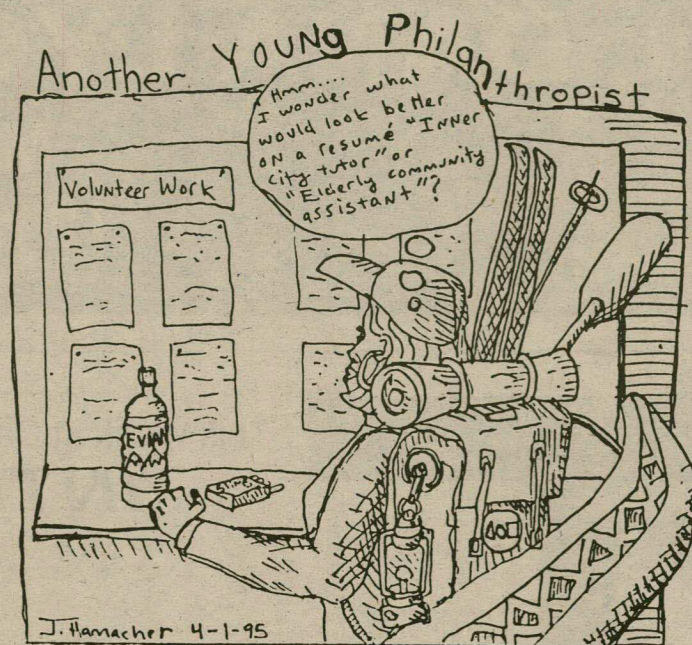 Another Young Philanthropist
Hmm....
I wonder what
would look better
on a resumé "Inner
city tutor" or
"Elderly community
assistant"?
Volunteer Work
EVIAN
J. Hamacher 4-1-95